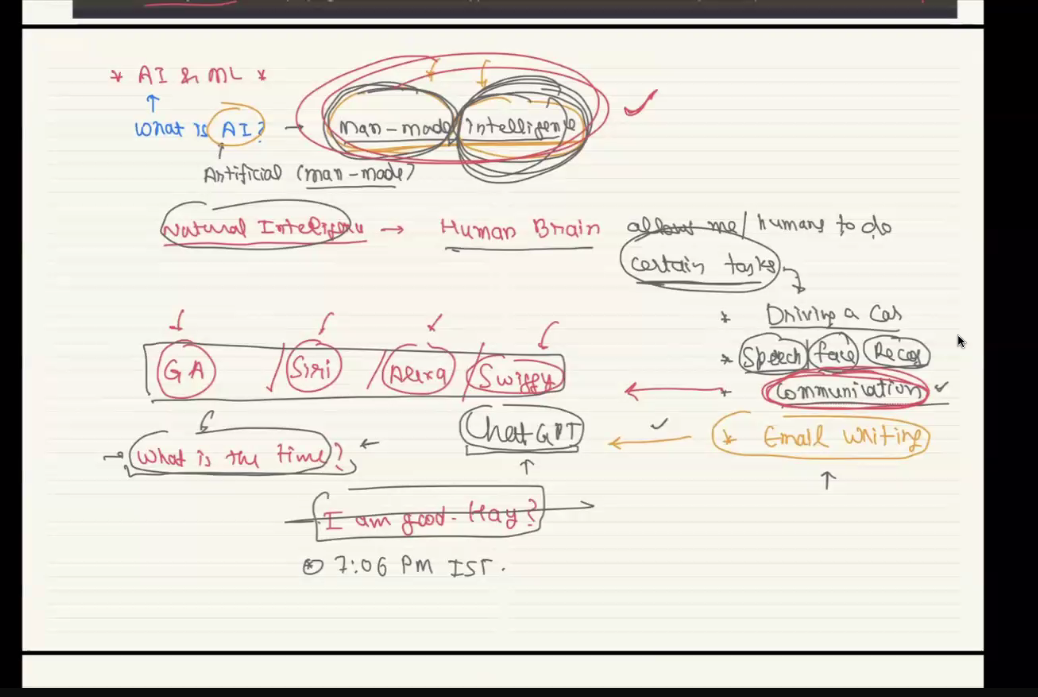 * AI & ML *
What is AI? → man-made intelligence
Artificial (man-made)
Natural → Human Brain allows me/humans to do
certain tasks
* Driving a Car
* Speech face Recog
GA / Siri / Alexa / Swiggy
* Communication
ChatGPT
* Email Writing
What is the time?
I am good. Hay?
7:06 PM IST.